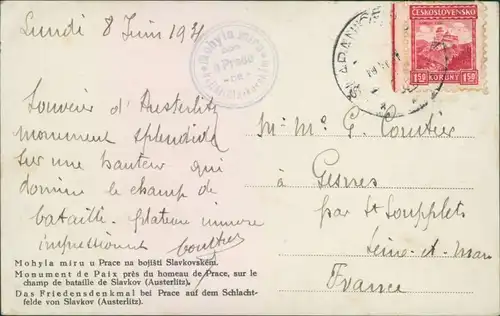 Lundi 8 Juin 1931
Mohyla miru
u Prace
ČESKOSLOVENSKO
1·50 KORUNY 1·50
Souvenir d'Austerlitz
monument splendide
sur une hauteur qui
domine le champ de
bataille. plateau immense
impressionnant Coutier
M. Me G. Coutier
à Gesvres
par St Soupplets
Seine-et-Marne
France
Mohyla míru u Prace na bojišti Slavkovském.
Monument de Paix près du homeau de Prace, sur le
champ de bataille de Slavkov (Austerlitz).
Das Friedensdenkmal bei Prace auf dem Schlacht-
felde von Slavkov (Austerlitz).